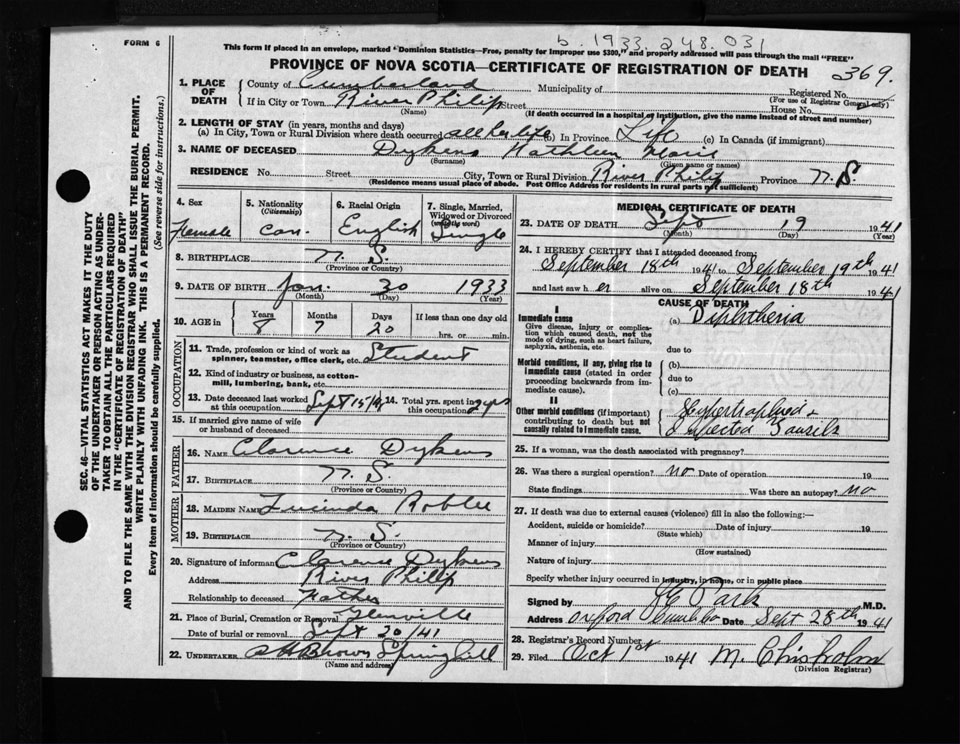 FORM 6
b. 1933 248.031
This form if placed in an envelope, marked "Dominion Statistics—Free, penalty for improper use $300," and properly addressed will pass through the mail "FREE"
PROVINCE OF NOVA SCOTIA—CERTIFICATE OF REGISTRATION OF DEATH
369.
1. PLACE OF DEATH County of Cumberland Municipality of Registered No.
(For use of Registrar General only)
If in City or Town River Philip Street House No.
(Name) (If death occurred in a hospital or institution, give the name instead of street and number)
2. LENGTH OF STAY (in years, months and days)
(a) In City, Town or Rural Division where death occurred all her life (b) In Province Life (c) In Canada (if immigrant)
3. NAME OF DECEASED Dykens Kathleen Marie
(Surname) (Given name or names)
RESIDENCE No. Street City, Town or Rural Division River Philip Province N. S.
(Residence means usual place of abode. Post Office Address for residents in rural parts not sufficient)
4. Sex Female
5. Nationality (Citizenship) Can.
6. Racial Origin English
7. Single, Married, Widowed or Divorced (write the word) Single
8. BIRTHPLACE N. S.
(Province or Country)
9. DATE OF BIRTH Jan. 30 1933
(Month) (Day) (Year)
10. AGE in Years Months Days If less than one day old
8 7 20 hrs. or min.
OCCUPATION
11. Trade, profession or kind of work as spinner, teamster, office clerk, etc. Student
12. Kind of industry or business, as cotton-mill, lumbering, bank, etc.
13. Date deceased last worked at this occupation Sept 15/41 14. Total yrs. spent in this occupation 2 yrs
15. If married give name of wife or husband of deceased
FATHER
16. NAME Clarence Dykens
17. BIRTHPLACE N. S.
(Province or Country)
MOTHER
18. MAIDEN NAME Lucinda Roblee
19. BIRTHPLACE N. S.
(Province or Country)
20. Signature of informant Clarence Dykens
Address River Philip
Relationship to deceased Father
21. Place of Burial, Cremation or Removal Glenville
Date of burial or removal Sept 20/41
22. UNDERTAKER Brown Springhill
(Name and address)
MEDICAL CERTIFICATE OF DEATH
23. DATE OF DEATH Sept 19 1941
(Month) (Day) (Year)
24. I HEREBY CERTIFY that I attended deceased from:
September 18th 1941 to September 19th 1941
and last saw her alive on September 18th 1941
CAUSE OF DEATH
I
Immediate cause
Give disease, injury or complication which caused death, not the mode of dying, such as heart failure, asphyxia, asthenia, etc.
(a) Diphtheria
due to
Morbid conditions, if any, giving rise to immediate cause (stated in order proceeding backwards from immediate cause).
(b)
due to
(c)
II
Other morbid conditions (if important) contributing to death but not causally related to immediate cause.
Hypertrophied & Infected Tonsils
25. If a woman, was the death associated with pregnancy?
26. Was there a surgical operation? no Date of operation 19
State findings Was there an autopsy? no
27. If death was due to external causes (violence) fill in also the following:—
Accident, suicide or homicide? Date of injury 19
(State which)
Manner of injury
(How sustained)
Nature of injury
Specify whether injury occurred in industry, in home, or in public place
Signed by Park M.D.
Address Oxford Cumb Co Date Sept 28th 1941
28. Registrar's Record Number
29. Filed Oct 1st 1941 M. Chisholm
(Division Registrar)
SEC. 46—VITAL STATISTICS ACT MAKES IT THE DUTY
OF THE UNDERTAKER OR PERSON ACTING AS UNDER-
TAKER TO OBTAIN ALL THE PARTICULARS REQUIRED
IN THE "CERTIFICATE OF REGISTRATION OF DEATH"
AND TO FILE THE SAME WITH THE DIVISION REGISTRAR WHO SHALL ISSUE THE BURIAL PERMIT.
WRITE PLAINLY WITH UNFADING INK. THIS IS A PERMANENT RECORD.
Every item of information should be carefully supplied. (See reverse side for instructions.)